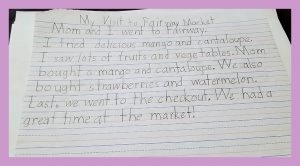 My Visit to Fairway Market
Mom and I went to Fairway.
I tried delicious mango and cantaloupe.
I saw lots of fruits and vegetables. Mom
bought a mango and cantaloupe. We also
bought strawberries and watermelon.
Last, we went to the checkout. We had a
great time at the market!